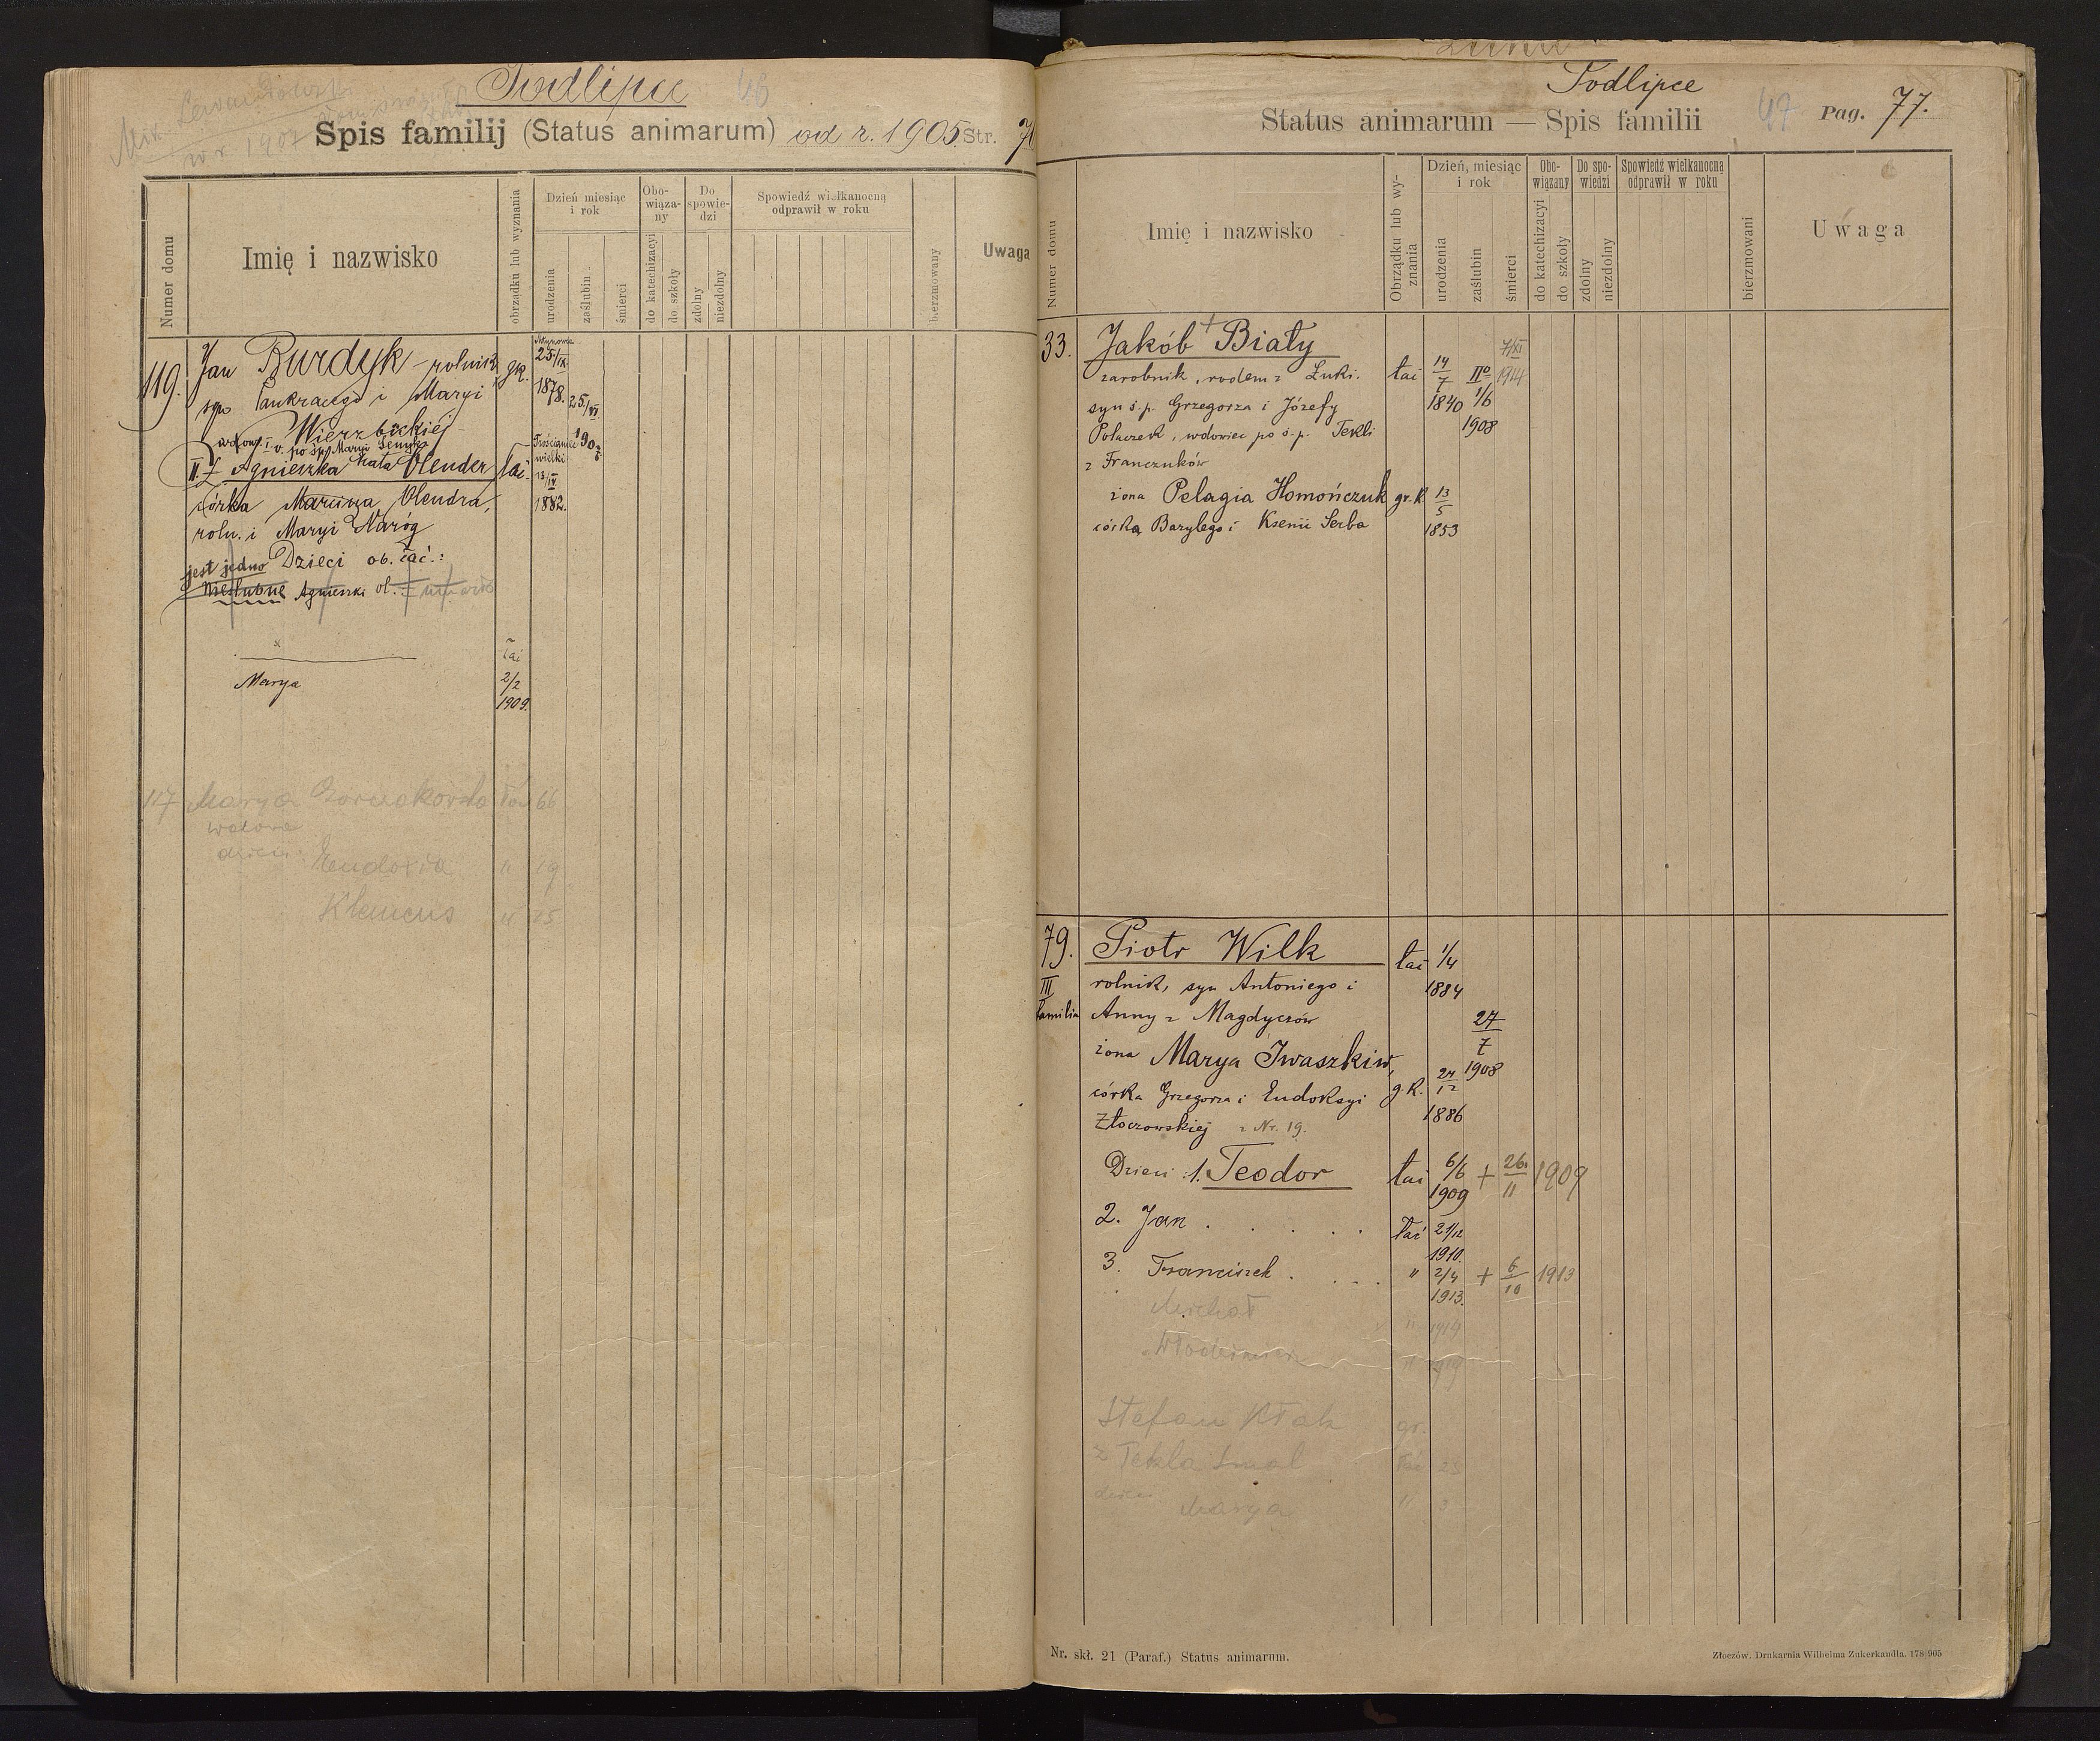 Podlipce 46
w r. 1907
Spis familij (Status animarum) od r. 1905 Str. 7
Numer domu
Imię i nazwisko
obrządku lub wyznania
Dzień miesiąc i rok
urodzenia
zaślubin
śmierci
Obowiązany
do katechizacyi
do szkoły
Do spowiedzi
zdolny
niezdolny
Spowiedź wielkanocną odprawił w roku
bierzmowany
Uwaga
119. Jan Burdyk - rolnik gk. 25/IX 1878.
syn Pankracego i Maryi 25/VI
Wierzbickiej 1907
wdowy I v. po śp. Maryi
II. ż. Agnieszka Nata Olender łać. wielki 13/IV
córka Marcina Olendra, 1882.
roln. i Maryi Naróg
jest jedno Dzieci ob. łać.:
Nieślubne Agnieszki ol. umarło
łać
Marya 2/2
1909.
117 Marya łać 66
wdowa
dzieci: Eudoxia " 19
Klemens " 25
Podlipce
Status animarum — Spis familii 47 Pag. 77.
Numer domu
Imię i nazwisko
Obrządku lub wyznania
Dzień, miesiąc i rok
urodzenia
zaślubin
śmierci
Obowiązany
do katechizacyi
do szkoły
Do spowiedzi
zdolny
niezdolny
Spowiedź wielkanocną odprawił w roku
bierzmowani
Uwaga
33. Jakób + Biały 7/XI
zarobnik, rodem z Łuki. łać 14/7 IIo 1914
syn ś.p. Grzegorza i Józefy 1840 1/6
Polaczek, wdowiec po ś.p. Tekli 1908
z Franczuków
żona Pelagia Homończuk gr. k. 13/5
córka Bazylego i Ksenii Serba 1853
79. Piotr Wilk łać 1/4
III rolnik, syn Antoniego i 1884
familia Anny z Magdyczów 27/7
żona Marya Iwaszkiw, 1908
córka Grzegorza i Eudoksyi g. k. 24/12
Złoczowskiej z Nr. 19. 1886
Dzieci: 1. Teodor łać 6/6 1909 + 26/11 1909
2. Jan . . . . . łać 21/12 1910.
3. Franciszek . . . . " 2/4 1913. + 6/10 1913
Michał " 1914
Włodzimierz " 1919
Stefan Kłak gr.
z Tekla Smal łać 23
dzieci Marya "
Nr. skł. 21 (Paraf.) Status animarum.
Złoczów. Drukarnia Wilhelma Zukerkandla. 178/905